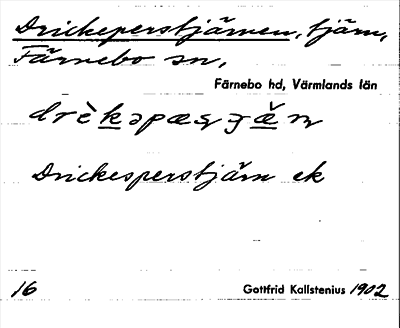 Drickeperstjärnen, tjärn,
Färnebo sn,
Färnebo hd, Värmlands län
Drickesperstjärn ek
16 Gottfrid Kallstenius 1902